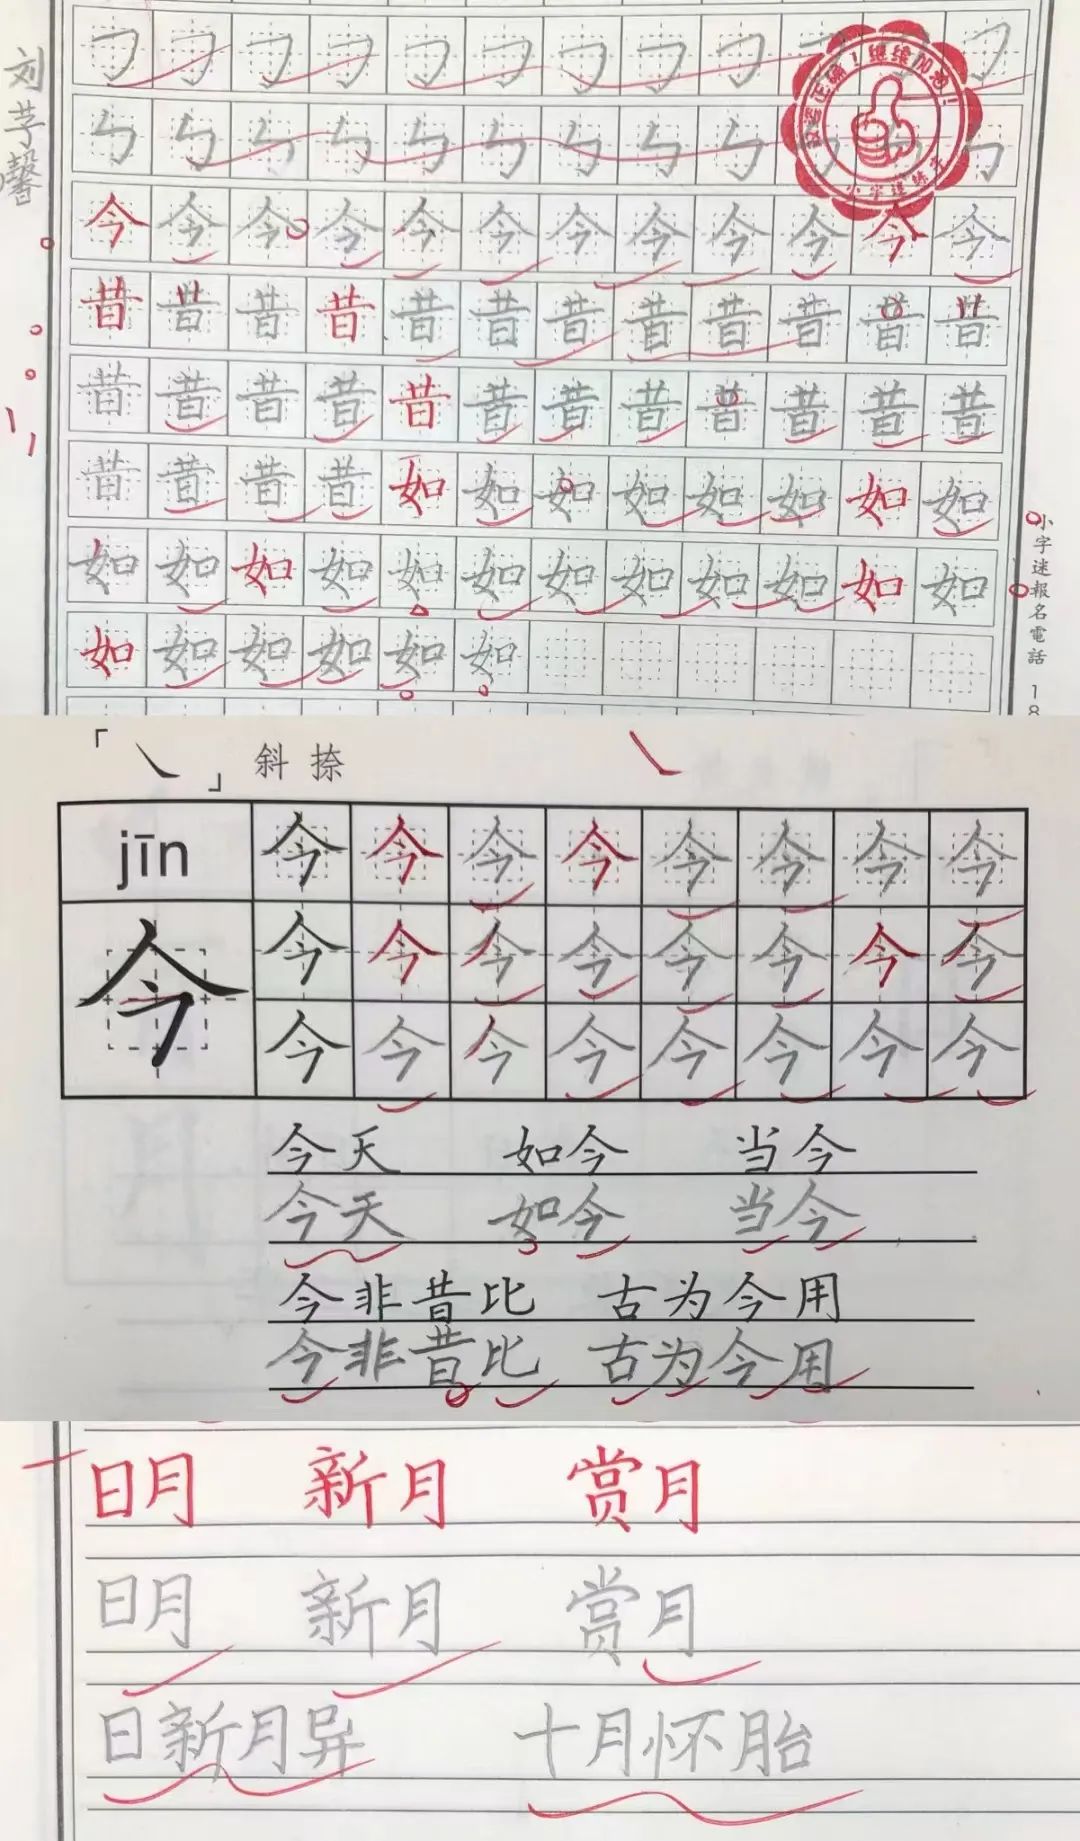 刘馨
姿正确！继续加油！
小字迷练字
今今今今今今今今今今今今
昔昔昔昔昔昔昔昔昔昔昔昔
昔昔昔昔昔昔昔昔昔昔昔昔
昔昔昔昔如如如如如如如如
如如如如如如如如如如如如
如如如如如如
小字迷報名電話 18
「㇏」斜捺
jīn 今今今今今今今今
今 今今今今今今今今
今今今今今今今今
今天 如今 当今
今天 如今 当今
今非昔比 古为今用
今非昔比 古为今用
日月 新月 赏月
日月 新月 赏月
日新月异 十月怀胎